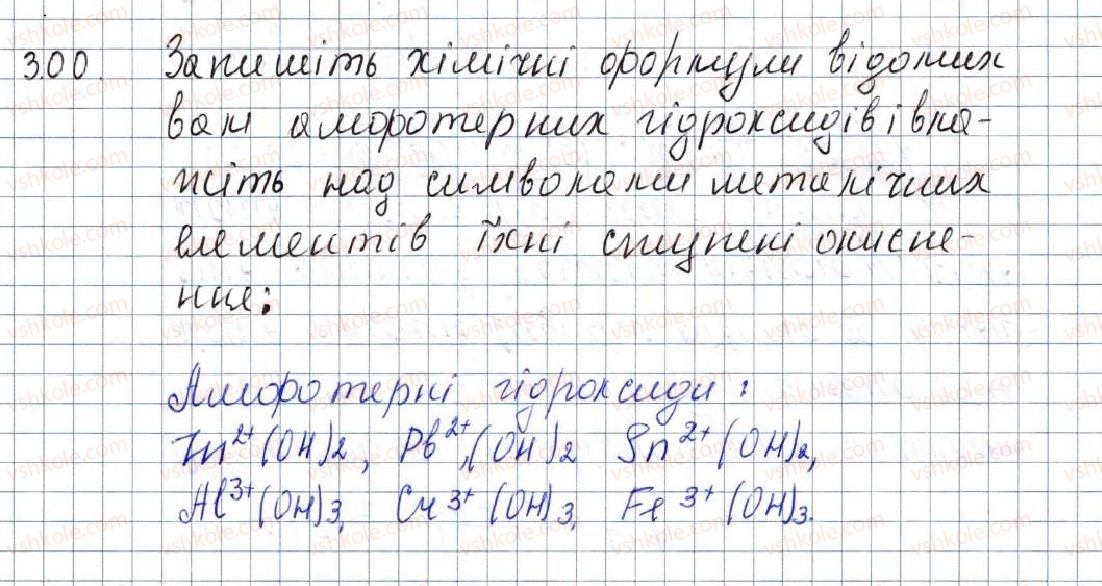 300. Запишіть хімічні формули відомих
вам амфотерних гідроксидів і вка-
жіть над символами металічних
елементів їхні ступені окисне-
ння:
Амфотерні гідроксиди:
Zn²⁺(OH)₂, Pb²⁺(OH)₂ Sn²⁺(OH)₂,
Al³⁺(OH)₃, Cr³⁺(OH)₃, Fe³⁺(OH)₃.